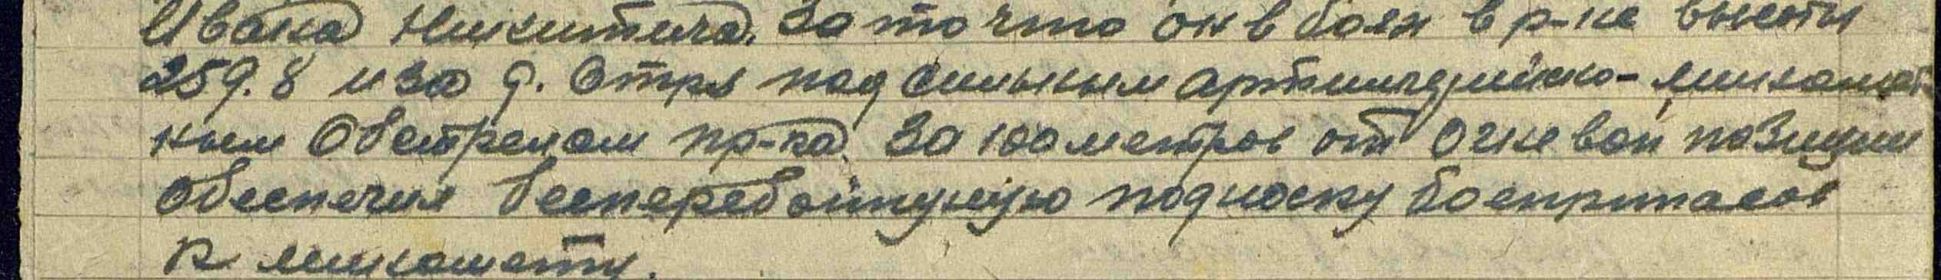 Ивана Никитича. За то что он в боях в р-не высоты
259.8 и за д. Отря под сильным артиллерийско-миномёт-
ным обстрелом пр-ка за 100 метров от огневой позиции
обеспечил бесперебойную подноску боеприпасов
к миномету.